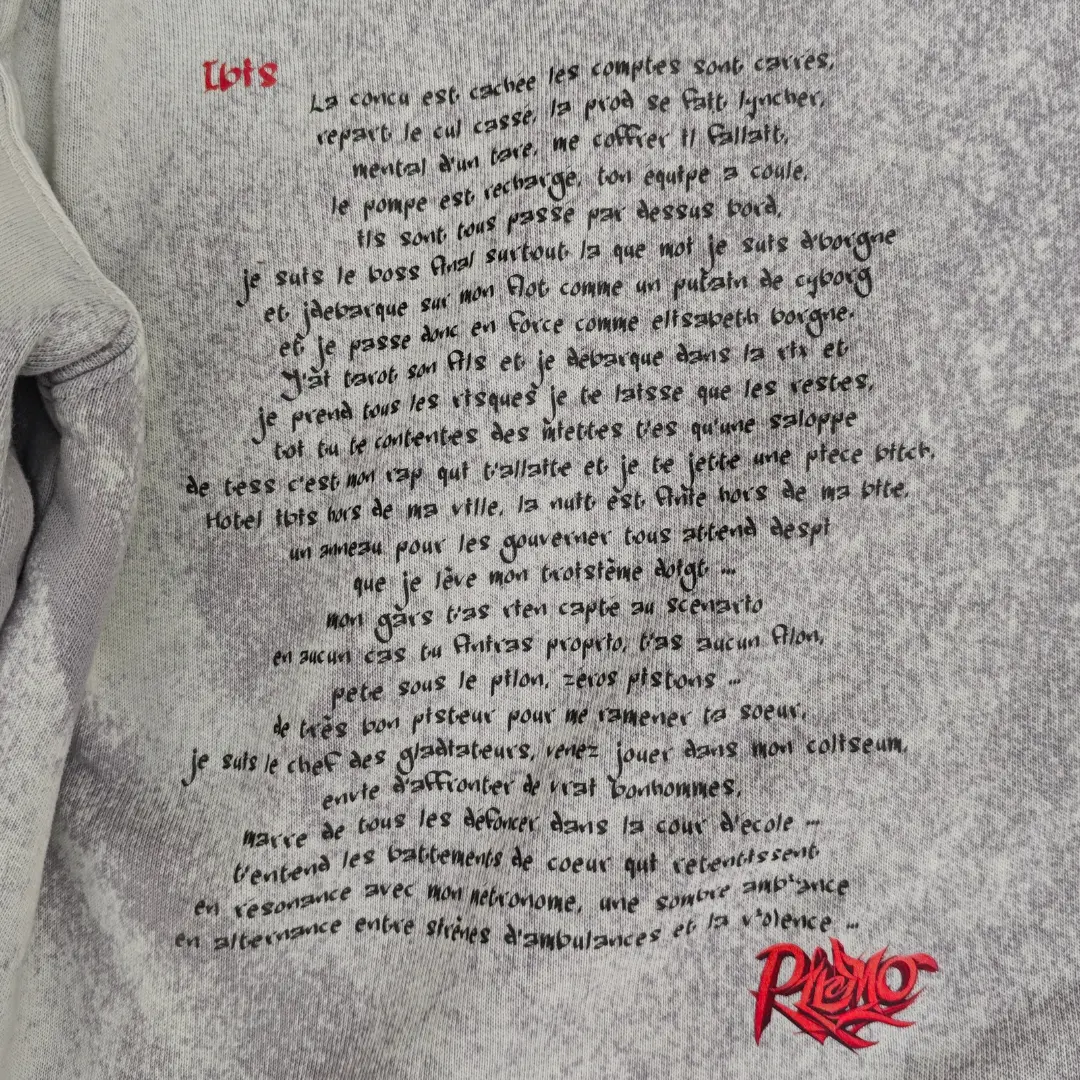 Ibis
La concu est cachée les comptes sont carrés,
repart le cul cassé, la prod se fait lyncher,
mental d'un taré, me coffrer il fallait,
le pompe est rechargé, ton équipe a coulé,
ils sont tous passé par dessus bord,
je suis le boss final surtout la que moi je suis d'borgne
et jdebarque sur mon flot comme un putain de cyborg
et je passe donc en force comme elisabeth borgne.
J'ai tarot son fils et je débarque dans la rix et
je prend tous les risques je te laisse que les restes,
toi tu te contentes des miettes t'es qu'une saloppe
de tess c'est mon rap qui t'allaite et je te jette une piece bitch,
Hotel ibis hors de ma ville, la nuit est finite hors de ma bite,
un anneau pour les gouverner tous attend despi
que je lève mon troisième doigt ...
mon gàrs t'as rien capté au scénario
en aucun cas tu finiras proprio, t'as aucun filon,
pete sous le pilon, zéros pistons ...
de très bon pisteur pour me ramener ta soeur,
je suis le chef des gladiateurs, venez jouer dans mon coliseum,
envie d'affronter de vrai bonhommes,
marre de tous les défoncer dans la cour d'ecole ...
t'entend les battements de coeur qui retentissent
en resonance avec mon metronome, une sombre ambiance
en alternance entre sirènes d'ambulances et la violence ...